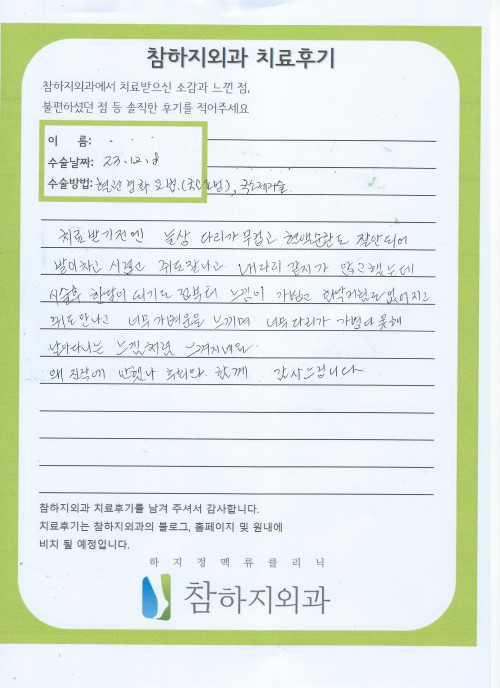 참하지외과 치료후기
참하지외과에서 치료받으신 소감과 느낀 점,
불편하셨던 점 등 솔직한 후기를 적어주세요
이 름:
수술날짜: 23.12.8
수술방법: 혈관경화요법. 국소제거술
치료받기전엔 늘상 다리가 무겁고 혈액순환도 잘안되어
발이차고 시렵고 쥐도잘나고 내다리 같지가 않고했는데
시술후 한달이 되기도 전부터 느낌이 가볍고 없어지고
쥐도안나고 너무가벼운을 느끼며 너무다리가 가볍다못해
날아다니는 느낌처럼 느껴지네요
왜 진작에 안했나 후회와 함께 감사드립니다
참하지외과 치료후기를 남겨 주셔서 감사합니다.
치료후기는 참하지외과의 블로그, 홈페이지 및 원내에
비치 될 예정입니다.
하지정맥류클리닉
참하지외과